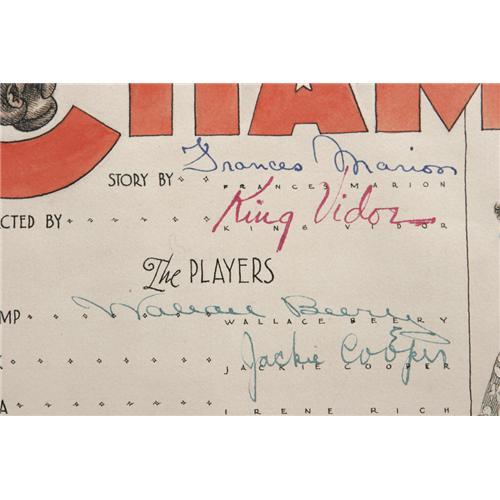 CHAM
Frances Marion
STORY BY FRANCES MARION
King Vidor
CTED BY KING VIDOR
The PLAYERS
Wallace Beery
MP WALLACE BEERY
Jackie Cooper
JACKIE COOPER
A IRENE RICH